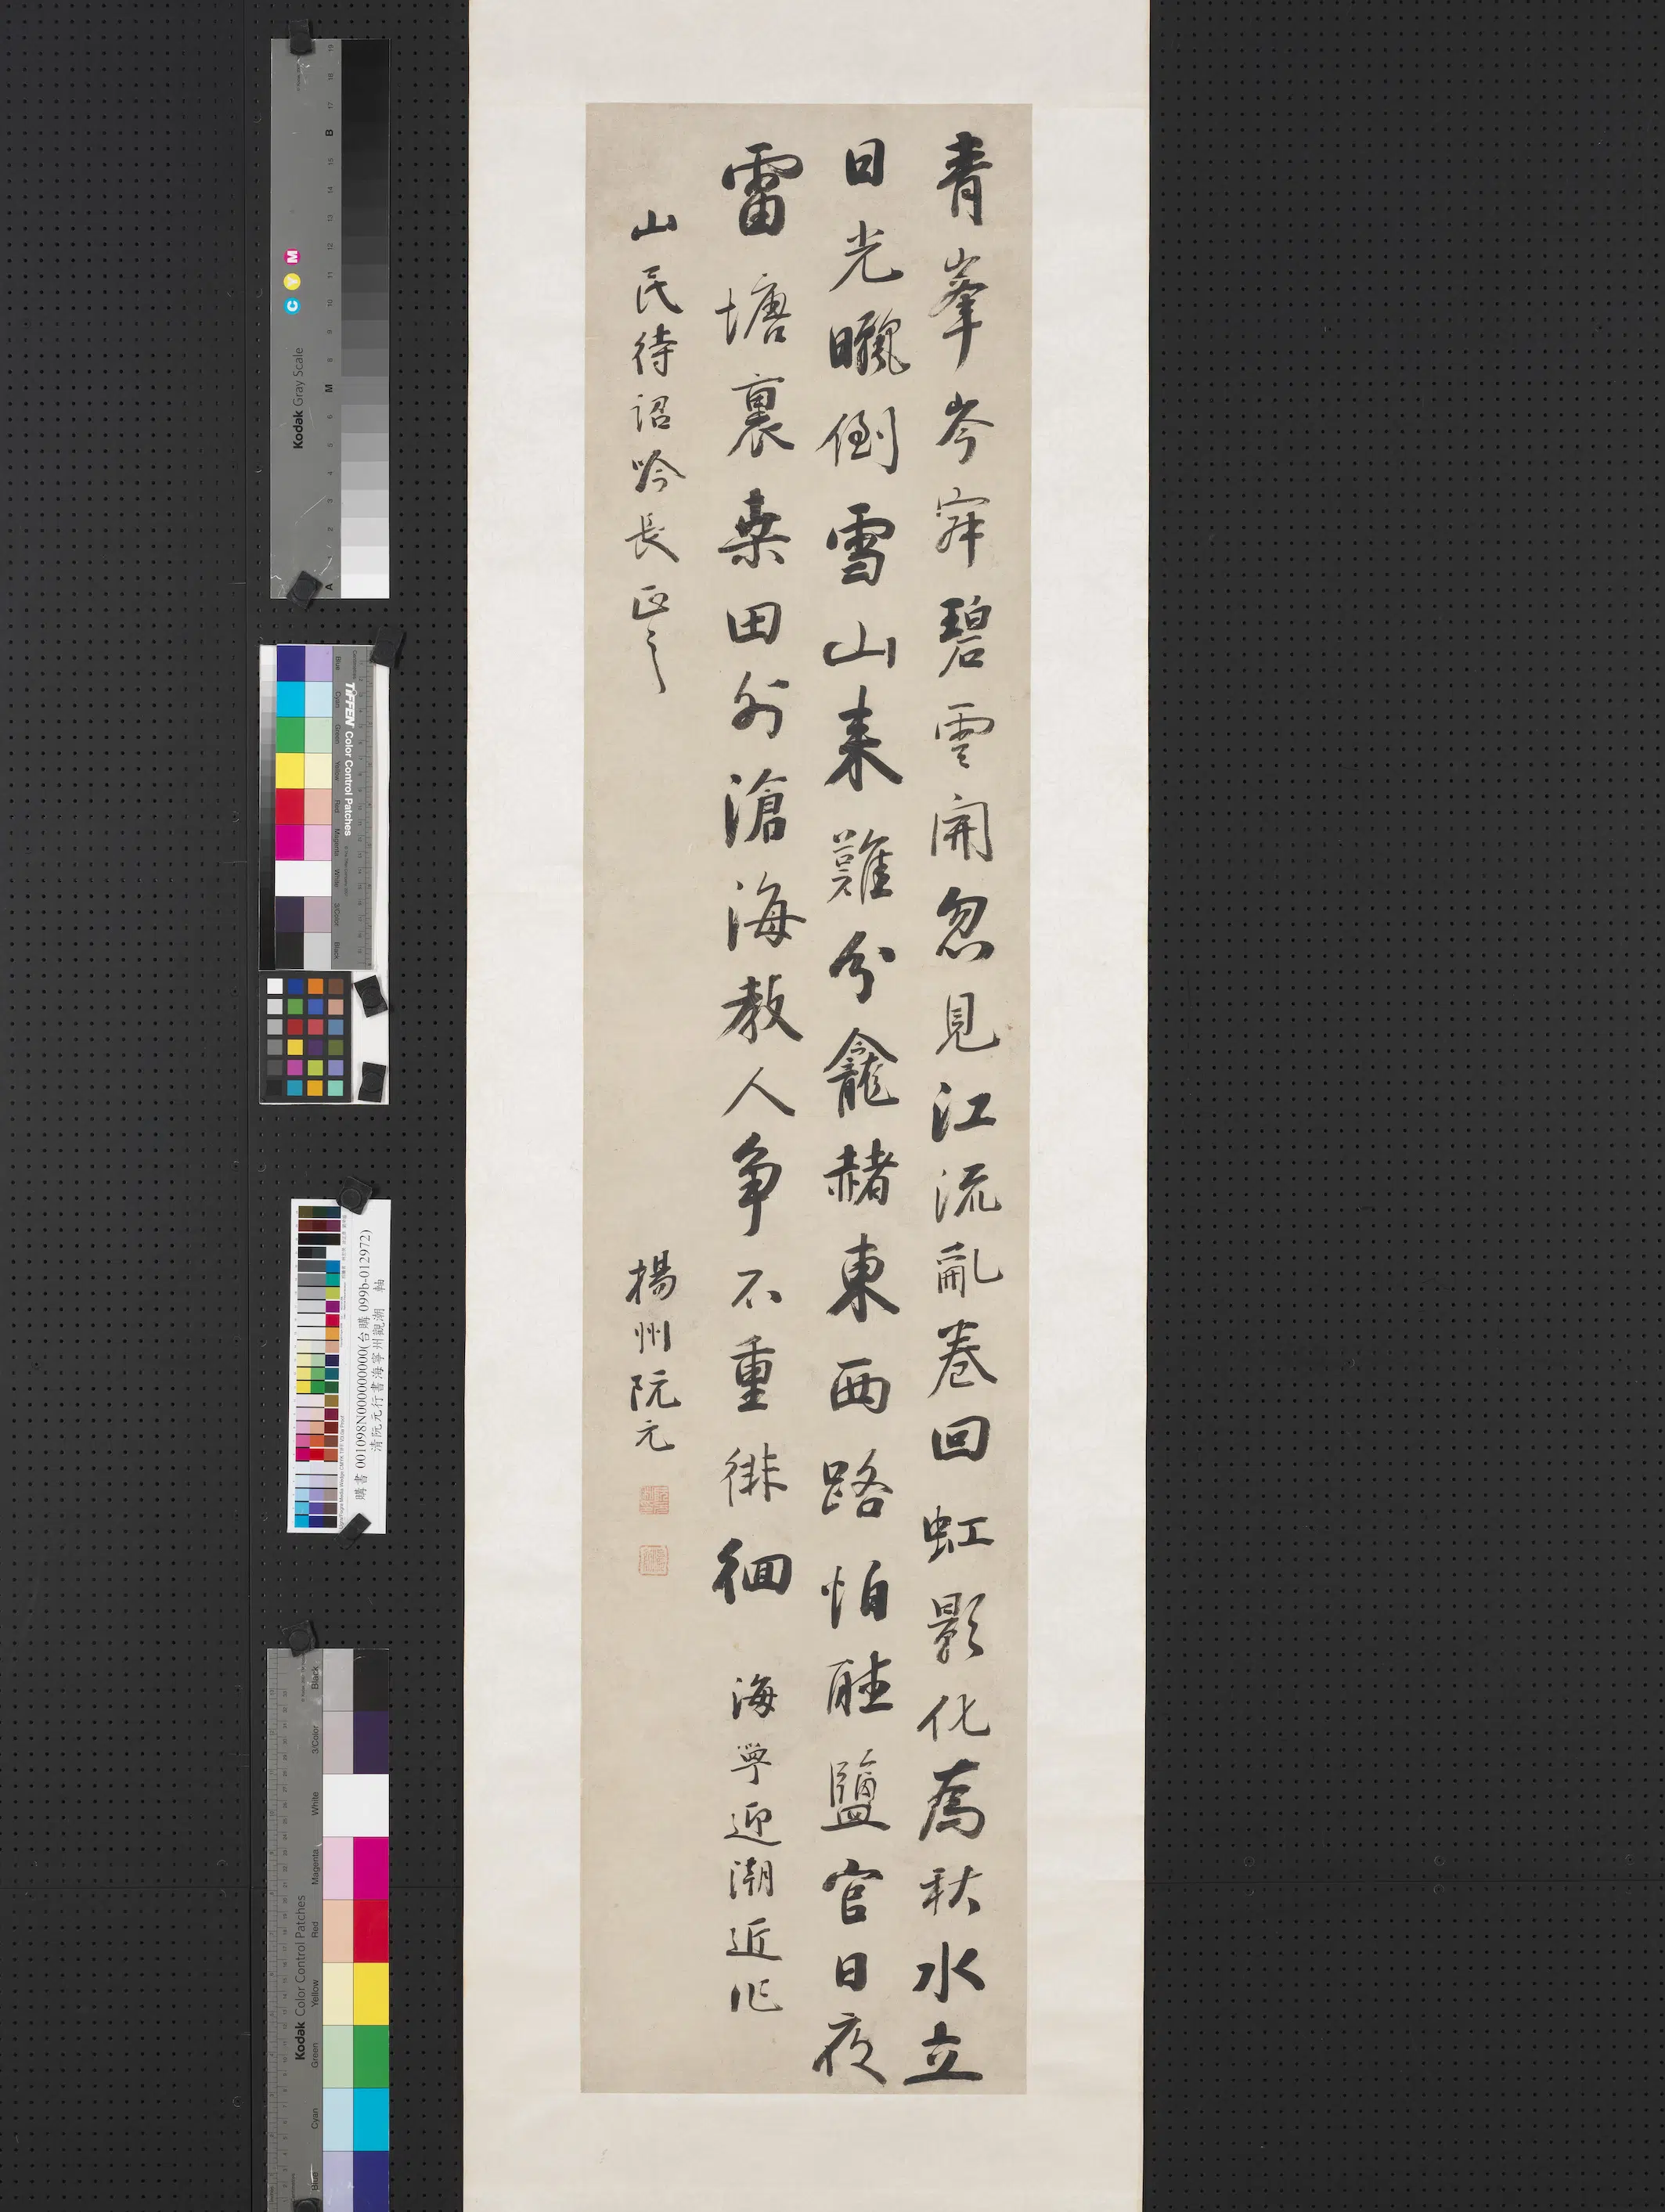 青峯岑寂碧雲開忽見江流亂卷回虹影化為秋水立
日光曬倒雪山来難分龕赭東西路怕聽鹽官日夜
雷塘裏桒田外滄海教人争不重徘徊 海寧迎潮近作
山民待詔吟長正之
揚州阮元
Kodak Gray Scale
C Y M
A M B
TIFFEN Color Control Patches
Blue Cyan Green Yellow Red Magenta White 3/Color Black
購書 001098N000000000(台購 099b-012972)
清阮元行書海寧州觀潮 軸
Kodak Color Control Patches
Blue Cyan Green Yellow Red Magenta White 3/Color Black